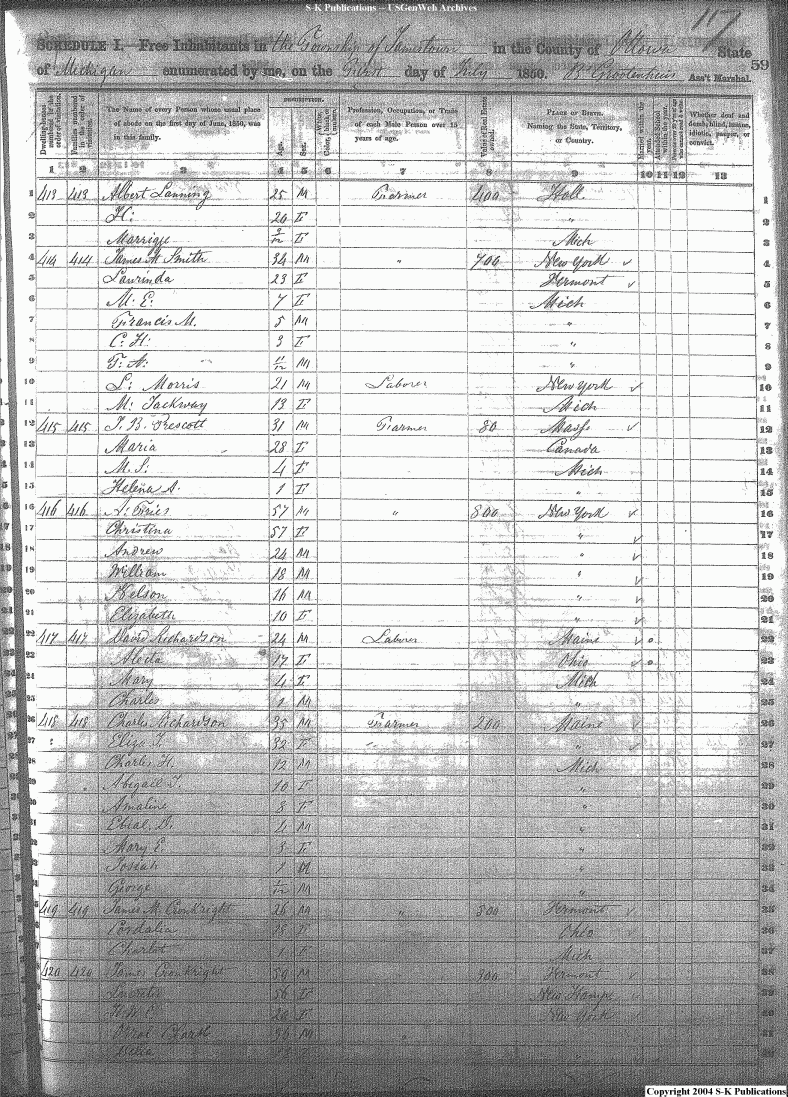 S-K Publications -- USGenWeb Archives
117
SCHEDULE I.—Free Inhabitants in the Township of Jamestown in the County of Ottowa State 59
of Michigan enumerated by me, on the First day of July 1850. B. Grootenhuis Ass't Marshal.
Dwelling-houses numbered in the order of visitation.
Families numbered in the order of visitation.
The Name of every Person whose usual place of abode on the first day of June, 1850, was in this family.
DESCRIPTION.
Age.
Sex.
Color, White, black, or mulatto.
Profession, Occupation, or Trade of each Male Person over 15 years of age.
Value of Real Estate owned.
PLACE OF BIRTH. Naming the State, Territory, or Country.
Married within the year.
Attended School within the year.
Whether deaf and dumb, blind, insane, idiotic, pauper, or convict.
1 2 3 4 5 6 7 8 9 10 11 12 13
1 413 413 Albert Lanning 25 M Farmer 400 Holl. 1
2 H: 20 F " 2
3 Marrigje 3/12 F Mich 3
4 414 414 James M Smith 34 M " 700 New York 4
5 Laurinda 23 F Vermont 5
6 M: E: 7 F Mich 6
7 Francis M. 5 M " 7
8 C: H: 3 F " 8
9 F: A: 11/12 M " 9
10 L: Morris 21 M Laborer New York 10
11 M: Jackway 13 F Mich 11
12 415 415 J. B. Prescott 31 M Farmer 80 Mass 12
13 Maria 28 F Canada 13
14 M. J: 4 F Mich 14
15 Helena A. 1 F " 15
16 416 416 A: Fries 57 M " 800 New York 16
17 Christina 57 F " 17
18 Andrew 24 M " 18
19 William 18 M " 19
20 Nelson 16 M " 20
21 Elizabeth 10 F " 21
22 417 417 David Richardson 24 M Laborer Maine 22
Alecta 17 F Ohio 23
24 Mary 4 F Mich 24
25 Charles 1 M " 25
26 418 418 Charles Richardson 35 M Farmer 200 Maine 26
27 Eliza F. 32 F " 27
28 Charles H. 12 M Mich 28
Abigail T. 10 F " 29
30 Amaline 8 F " 30
31 D. 4 M " 31
32 Mary E. 3 F " 32
33 Josiah 1 M " 33
34 George 1/12 M " 34
419 419 James M. Cronkright 26 M " 300 Vermont
Cordalia F Ohio
Charlot 1 F Mich
420 420 James Cronkright 50 M 300 Vermont
F New Hamp.
F New York
M "
Copyright 2004 S-K Publications